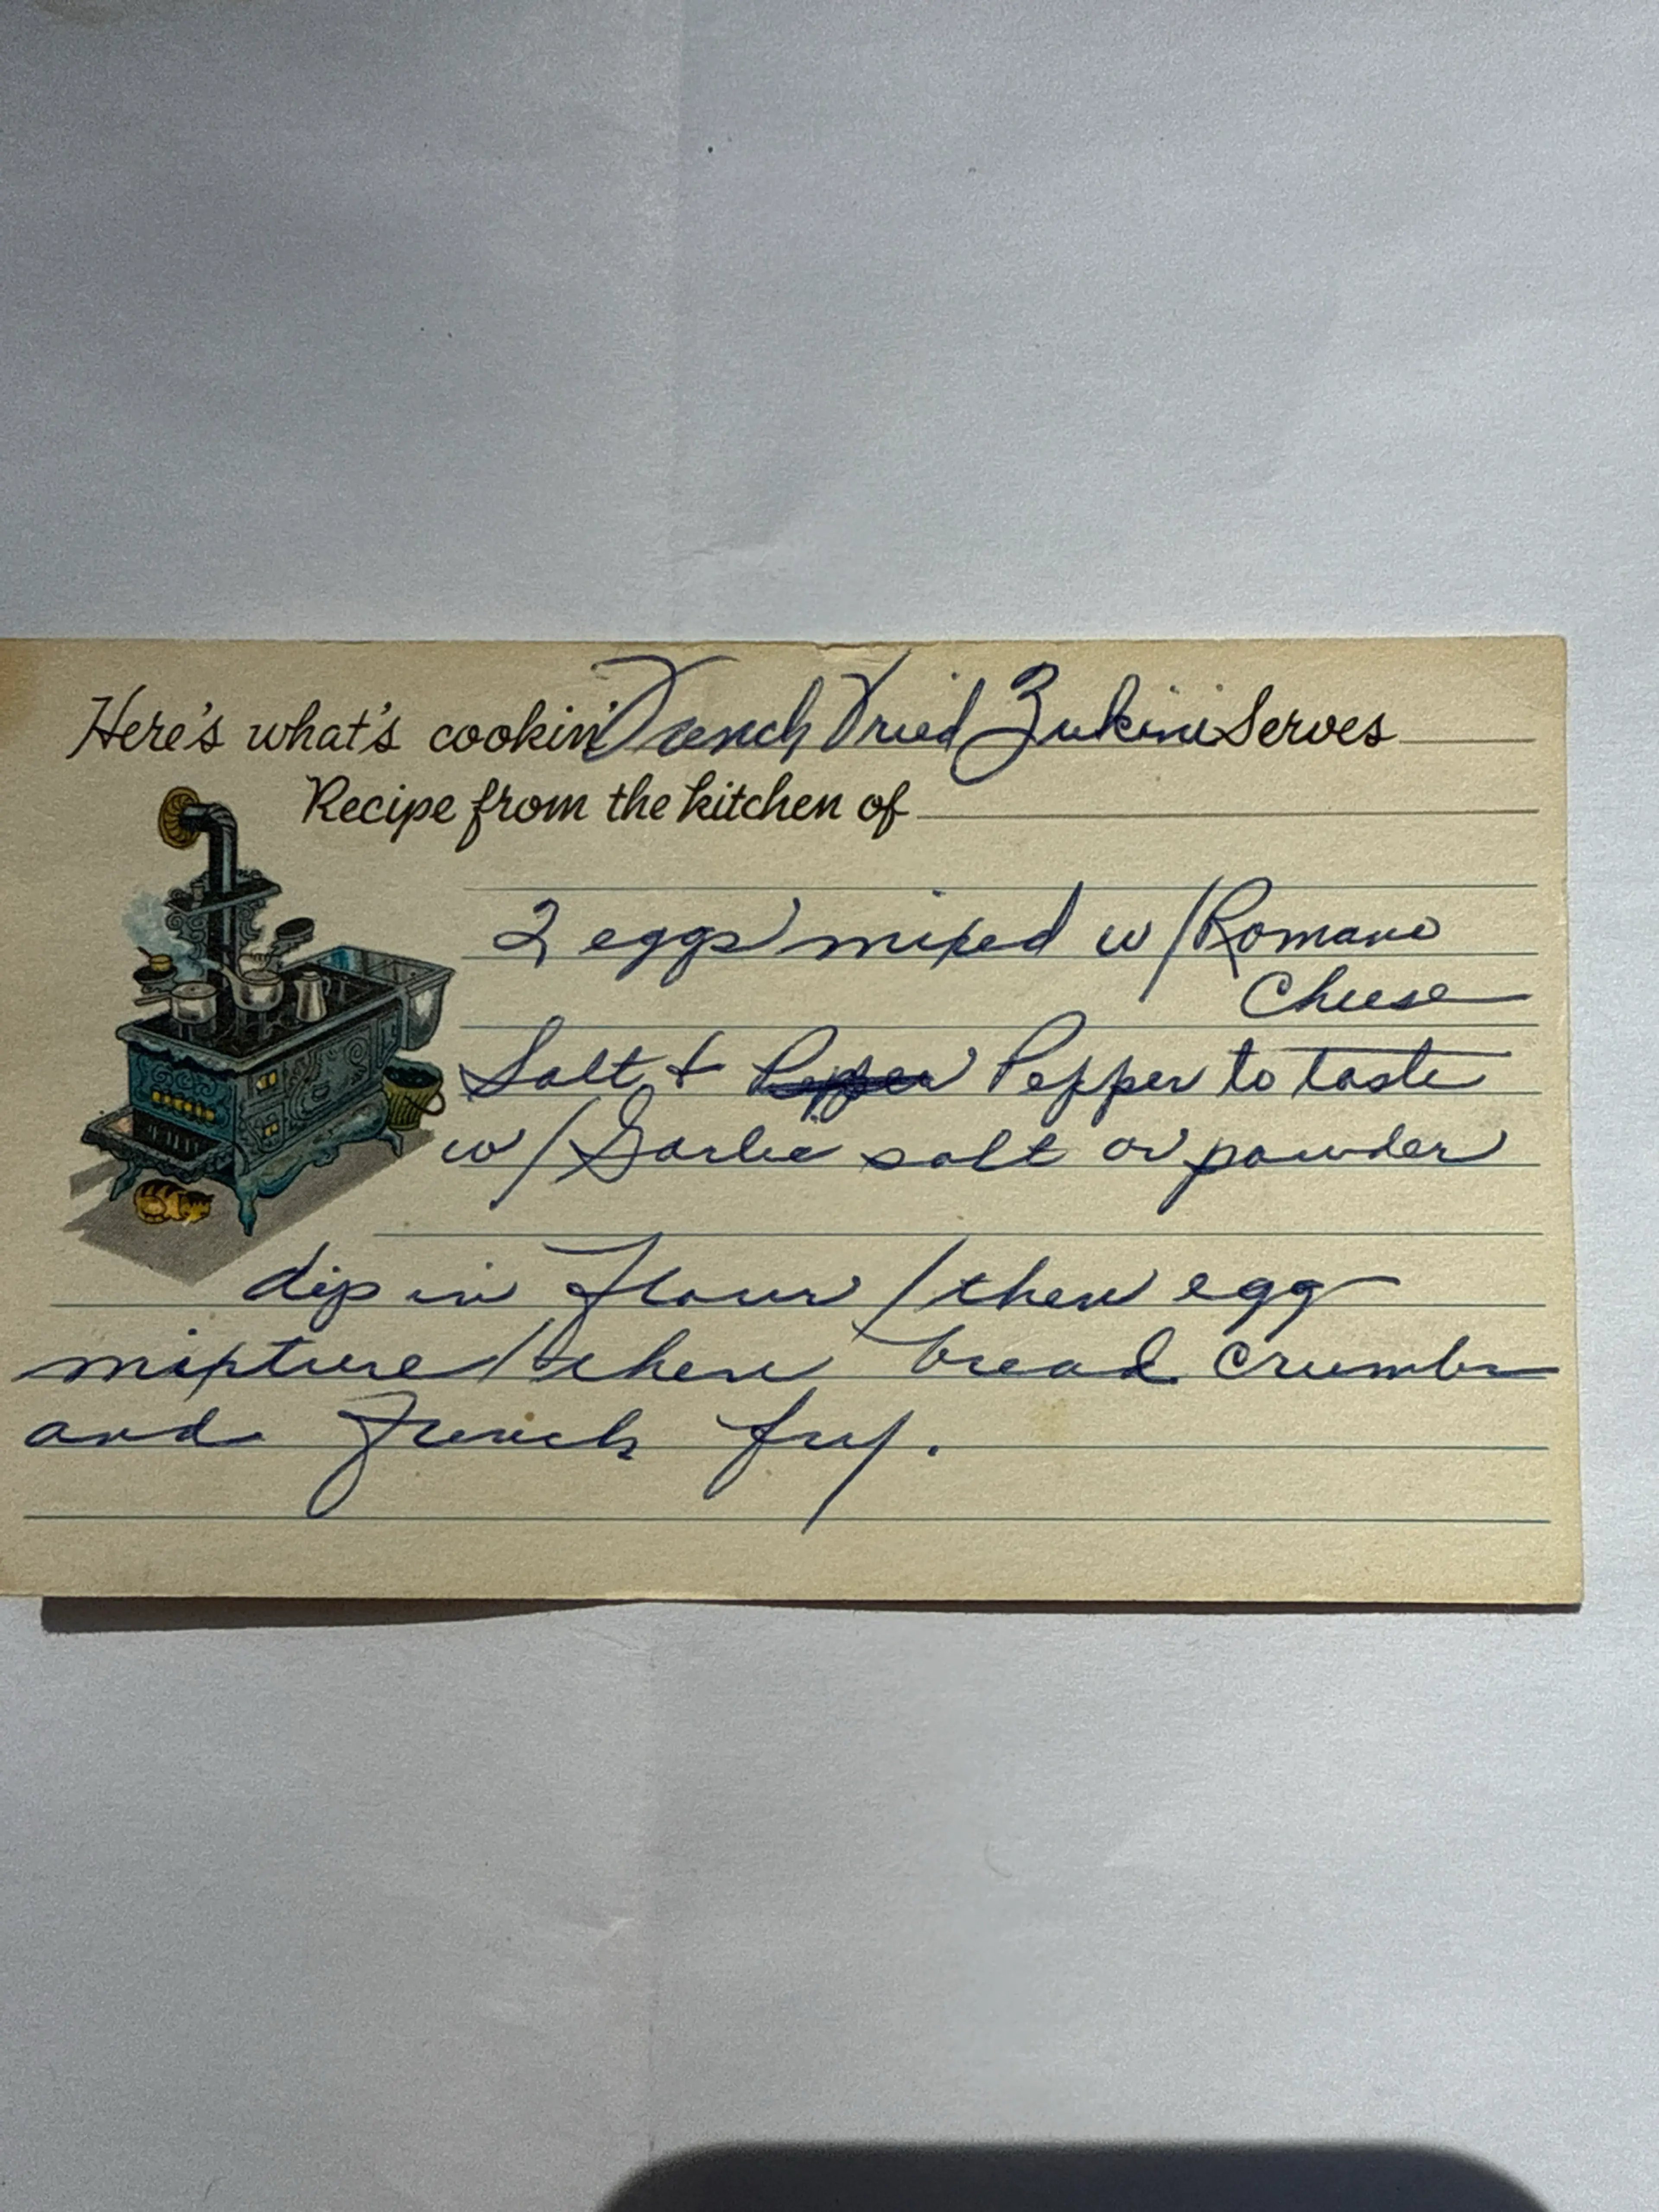 Here's what's cookin' French Fried Zukini Serves
Recipe from the kitchen of
2 eggs mixed w/Romano
Cheese
Salt & Pepper Pepper to taste
w/Garlic salt or powder
dip in flour / then egg
mixture / then bread crumbs
and french fry.